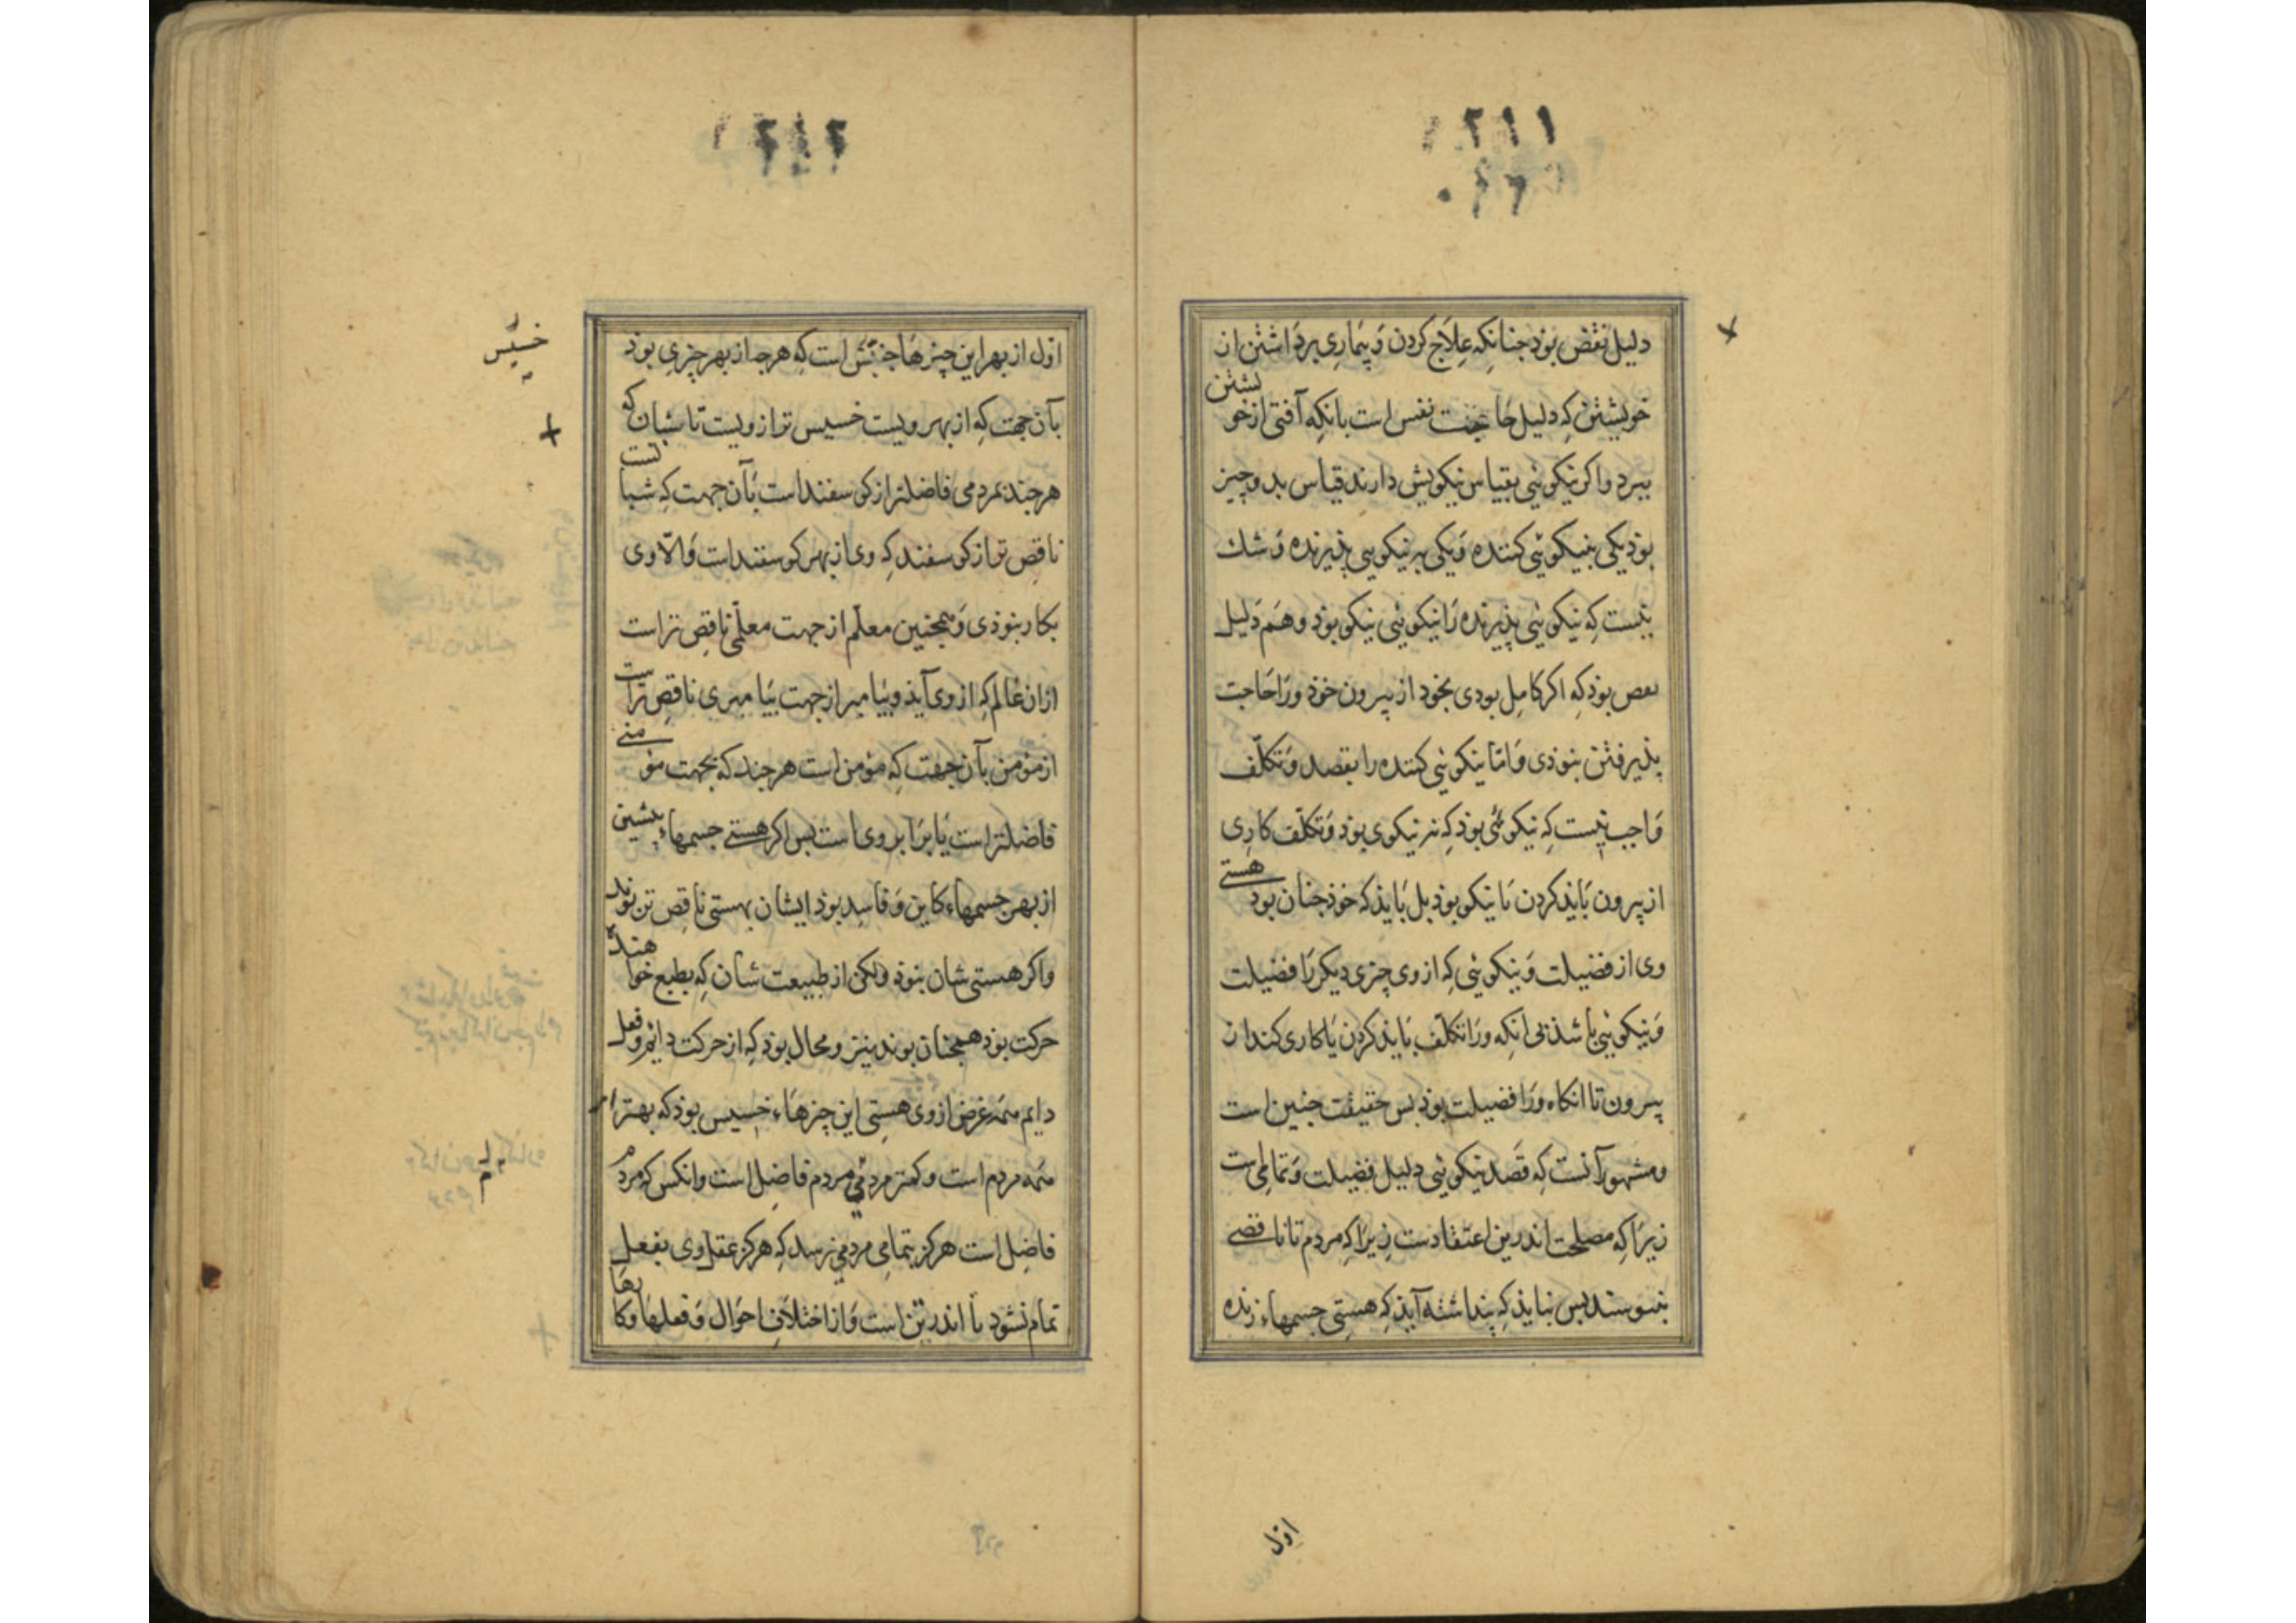 ۱۲۱۱
دلیل نقص بوذ جنانکه علاج کردن و بیماری برداشتن از
خویشتن که دلیل حاجت نفس است بانکه آفتی از خو یشتن
ببرد واکر نیکویی بقیاس نیکویش دارند قیاس بدو چیز
بوذ یکی بنیکویی کننده و یکی بر نیکویی پذیرنده و شك
نیست که نیکویی پذیرنده را نیکویی نیکو بوذ و هم دلیل
نقص بوذ که اکر کامل بودی بخود از بیرون خوذ ورا حاجت
پذیرفتن نبوذی و امّا نیکویی کننده را بقصد و تکلّف
واجب نیست که نیکوئی بوذ که نیکوی بوذ و تکلّف کاری
از بیرون بایذ کردن تا نیکو بوذ بل بایذ که خوذ جنان بود هستی
وی از فضیلت و نیکویی که از وی چیزی دیکر را فضیلت
و نیکویی باشذ بی انکه ورا تکلّف بایذ کردن یا کاری کند از
بیرون تا انکاه ورا فضیلت بوذ بس حقیقت جنین است
ومشهور آنست که قصد نیکویی دلیل فضیلت و تمامی است
زیرا که مصلحت اندرین اعتقادست زیرا که مردم تا ناقصی
بس نبایذ که پنداشته آیذ که هستی جسمهاء زنده
اوّل
۱۲۱۲
اوّل از بهر این چیزها جنبش است که هرجه از بهر چیزی بوذ
بآن جهت که از بهر ویست خسیس تر از ویست تا شبان که
هرجند بمردمی فاضلتر از کوسفند است بآن جهت که شبا نست
ناقص تر از کوسفند که وی از بهر کوسفند است و الّا وی
بکار نبوذی و همجنین معلّم از جهت معلّمی ناقص تر است
ازان عالم که از وی آیذ و بیامبر از جهت بیامبری ناقص تر است
از مؤمن بآن جهت که مؤمن است هرجند که بجهت مؤ منی
فاضلتر است یا برابر وی است بس اکر هستی جسمهاء بیشین
از بهر جسمهاء کاین و فاسد بوذ ایشان بهستی ناقص تر بوند
واکر هستی شان نبوذ ولکن از طبیعت شان که بطبع خوا هندهٔ
حرکت بوذ همجنان بوند نیز و محال بوذ که از حرکت دایم و فعل
دایم همه غرض از وی هستی این چیزهاء خسیس بوذ که بهتر از
همه مردم است و کمتر مردمی مردم فاضل است وانکس که مرد م
فاضل است هرکز بتمامی مردمی نرسد که هرکز عقل وی بفعل
تمام نشود تا اندر تن است و از اختلاف احوال و فعلها وکا رها
خسیس